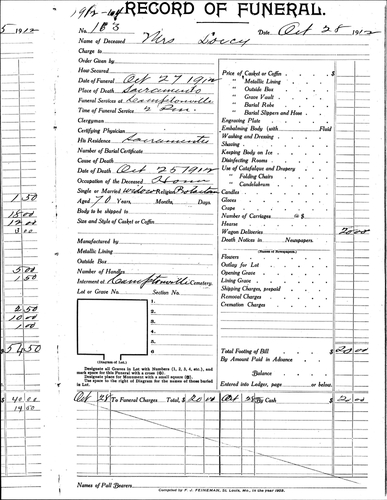 1912-104
RECORD OF FUNERAL.
5 1912
No. 183
Date Oct 28 1912
Name of Deceased Mrs
Charge to
Order Given by
How Secured
Date of Funeral Oct 27 1912
Place of Death Sacramento
Funeral Services at Camptonville
Time of Funeral Service 2 P.m.
Clergyman
Certifying Physician
His Residence Sacramento
Number of Burial Certificate
Cause of Death
Date of Death Oct 25 1912
Occupation of the Deceased Home
Single or Married widow Religion Protestant
Aged 70 Years, Months, Days.
Body to be shipped to
Size and Style of Casket or Coffin
Manufactured by
Metallic Lining
Outside Box
Number of Handles
Interment at Camptonville Cemetery.
Lot or Grave No. Section No.
1.
2.
3.
4.
5.
6
(Diagram of Lot.)
Designate all Graves in Lot with Numbers (1, 2, 3, 4, etc.), and
mark space for this Funeral with a cross
Designate place for Monument with a small square
Use space to right of Diagram for the names of those buried
in Lot.
Price of Casket or Coffin $
" Metallic Lining
" Outside Box
" Grave Vault
" Burial Robe
" Burial Slippers and Hose
Engraving Plate
Embalming Body (with Fluid
Washing and Dressing
Shaving
Keeping Body on Ice
Disinfecting Rooms
Use of Catafalque and Drapery
" Folding Chairs
" Candelabrum
Candles
Gloves
Crape
Number of Carriages @ $
Hearse
Wagon Deliveries 20 00
Death Notices in Newspapers.
(Names of Newspapers.)
Flowers
Outlay for Lot
Opening Grave
Lining Grave
Shipping Charges, prepaid
Removal Charges
Cremation Charges
Total Footing of Bill $ 20 00
By Amount Paid in Advance
Balance
Entered into Ledger, page or below.
1 50
15 00
12 00
3 00
5 00
1 50
2 50
10 00
1 00
54 50
40 00
14 50
Oct 28 To Funeral Charges Total, $ 20 00 Oct 28 By Cash $ 20 00
Names of Pall Bearers
Compiled by F. J. FEINEMAN, St. Louis, Mo., in the year 1902.